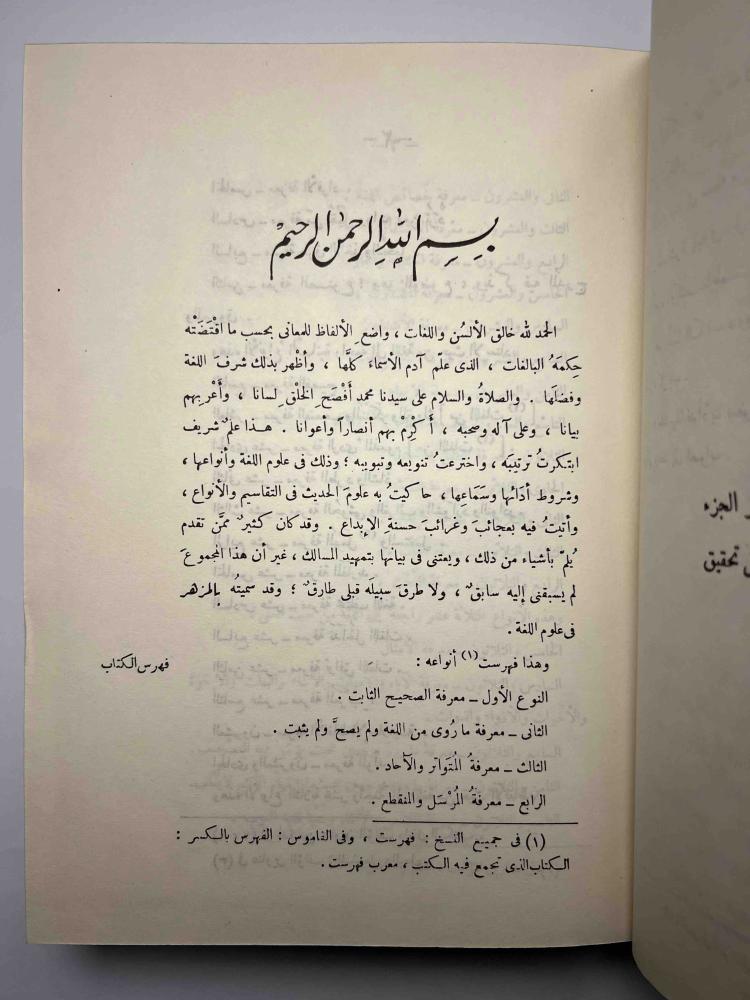 بِسِمِ اللهِ الرحمٰن الرحيم
الحمد لله خالق الألسُن واللغات ، واضع ِ الألفاظ للمعانى بحسب ما اقْتَضَتْه
حِكمَهُ البالغات ، الذى علّم آدم الأسماءَ كلَّها ، وأظْهر بذلك شرفَ اللغة
وفضلَها . والصلاةُ والسلام على سيدنا محمد أَفْصَح ِ الخلْق ِ لسانا ، وأَعْربِهم
بيانا ، وعلى آله وصحبه ، أَكْرِمْ بهم أنصاراً وأعوانا . هذا علمٌ شريف
ابتكرتُ ترتيبَه ، واخترعتُ تنويعه وتبويبه ؛ وذلك فى علوم اللغة وأنواعها ،
وشروط أدائها وسَمَاعِها ، حاكيتُ به علومَ الحديث فى التقاسيم والأنواع ،
وأتيتُ فيه بعجائبَ وغرائبَ حسنةِ الإبداع . وقد كان كثيرٌ ممَّن تقدم
يُلمّ بأشياء من ذلك ، ويعتنى فى بيانها بتمهيد المسالك ، غير أن هذا المجموعَ
لم يسبقنى إليه سابقٌ ، ولا طرقَ سبيلَه قبلى طارقٌ ؛ وقد سميتُه بالمزهر
فى علوم اللغة .
وهذا فهرست(١) أنواعه :
فهرس الكتاب
النوع الأول ــ معرفة الصحيح الثابت .
الثانى ــ معرفة ما رُوى من اللغة ولم يصحَّ ولم يثبت .
الثالث ــ معرفةُ المُتَواتر والآحاد .
الرابع ــ معرفةُ المُرْسَل والمنقطع .
(١) فى جميع النسخ : فهرست ، وفى القاموس : الفهرس بالكسر :
الكتاب الذى تجمع فيه الكتب ، معرب فهرست .
الجزء
تحقيق